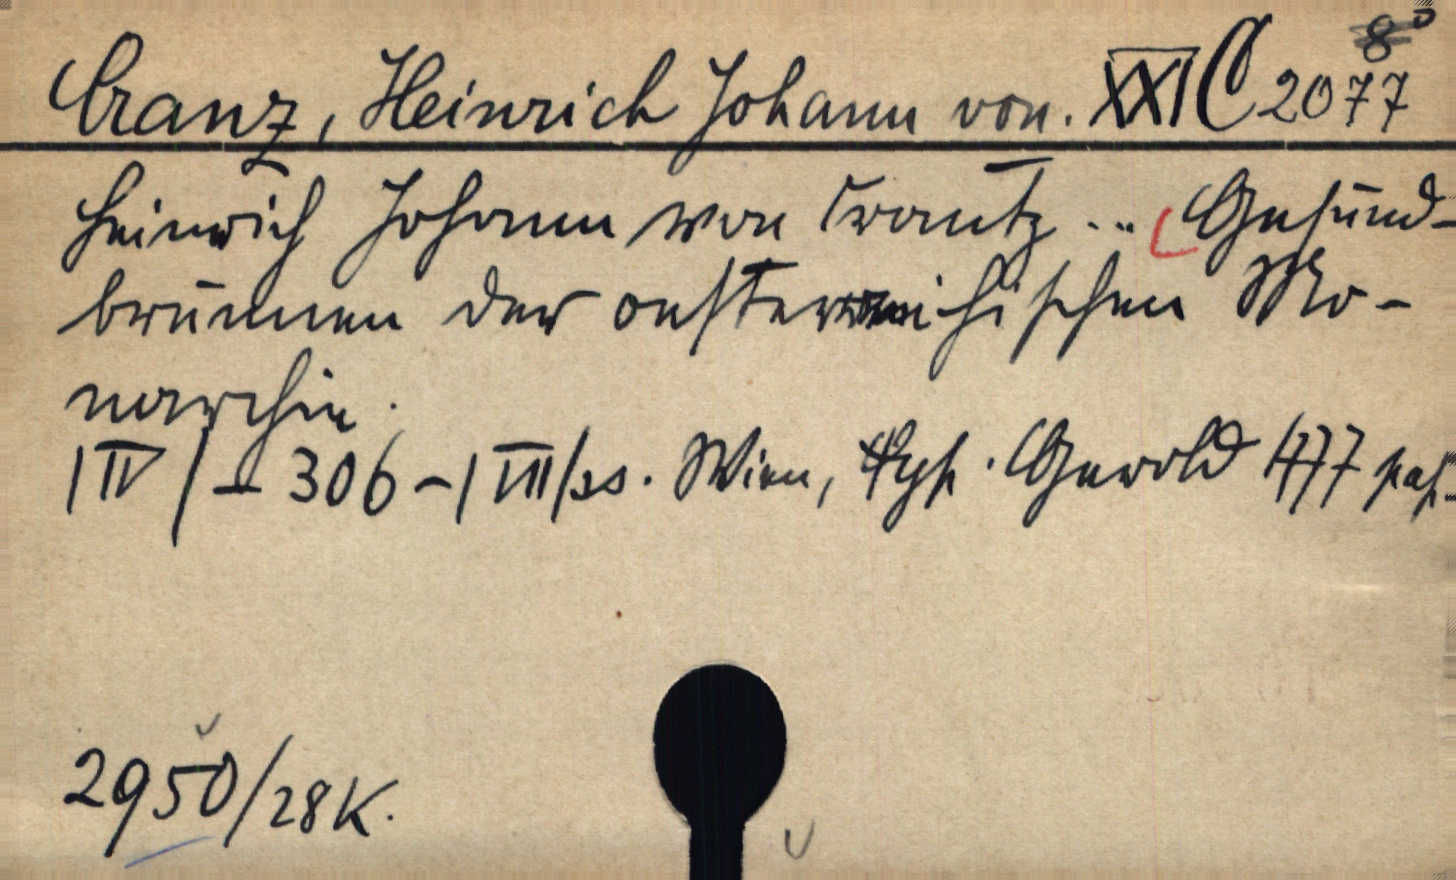 Cranz, Heinrich Johann von. XXI C 2077 8°
Heinrich Johann von Crantz ... Gesund-
brunnen der oesterreichischen Mo-
narchie.
|IV| - 306 - |VII|ss. Wien, Gerold 1777
2950/28K.